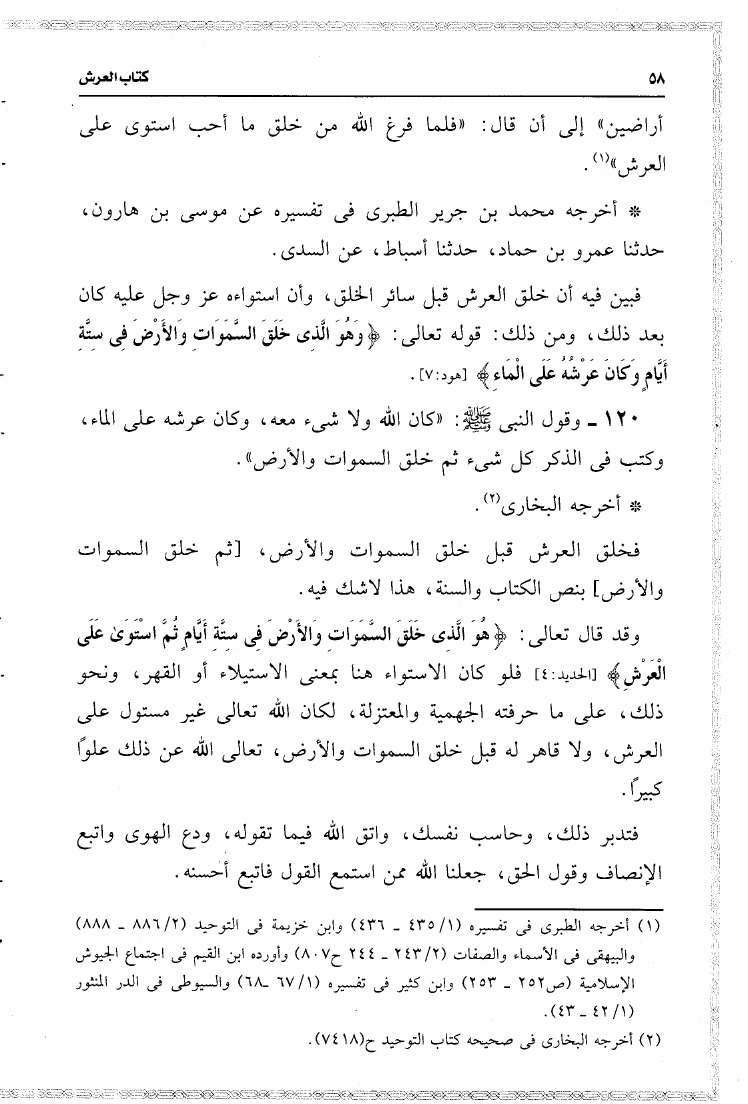 ٥٨ كتاب العرش
أراضين» إلى أن قال: «فلما فرغ الله من خلق ما أحب استوى على
العرش»(١).
* أخرجه محمد بن جرير الطبرى فى تفسيره عن موسى بن هارون،
حدثنا عمرو بن حماد، حدثنا أسباط، عن السدى.
فبين فيه أن خلق العرش قبل سائر الخلق، وأن استواءه عز وجل عليه كان
بعد ذلك، ومن ذلك: قوله تعالى: ﴿وَهُوَ الَّذِى خَلَقَ السَّمَوَاتِ وَالأَرْضَ فِى سِتَّةِ
أَيَّامٍ وَكَانَ عَرْشُهُ عَلَى الْمَاءِ﴾ [هود:٧].
١٢٠ ـ وقول النبى ﷺ: «كان الله ولا شىء معه، وكان عرشه على الماء،
وكتب فى الذكر كل شىء ثم خلق السموات والأرض».
* أخرجه البخارى(٢).
فخلق العرش قبل خلق السموات والأرض، [ثم خلق السموات
والأرض] بنص الكتاب والسنة، هذا لاشك فيه.
وقد قال تعالى: ﴿هُوَ الَّذِى خَلَقَ السَّمَوَاتِ وَالأَرْضَ فِى سِتَّةِ أَيَّامٍ ثُمَّ اسْتَوَىٰ عَلَى
الْعَرْشِ﴾ [الحديد:٤] فلو كان الاستواء هنا بمعنى الاستيلاء أو القهر، ونحو
ذلك، على ما حرفته الجهمية والمعتزلة، لكان الله تعالى غير مستول على
العرش، ولا قاهر له قبل خلق السموات والأرض، تعالى الله عن ذلك علوًا
كبيرًا.
فتدبر ذلك، وحاسب نفسك، واتق الله فيما تقوله، ودع الهوى واتبع
الإنصاف وقول الحق، جعلنا الله ممن استمع القول فاتبع أحسنه.
(١) أخرجه الطبرى فى تفسيره (١/ ٤٣٥ ـ ٤٣٦) وابن خزيمة فى التوحيد (٢/ ٨٨٦ ـ ٨٨٨)
والبيهقى فى الأسماء والصفات (٢/ ٢٤٣ ـ ٢٤٤ ح٨٠٧) وأورده ابن القيم فى اجتماع الجيوش
الإسلامية (ص٢٥٢ ـ ٢٥٣) وابن كثير فى تفسيره (١/ ٦٧ ـ٦٨) والسيوطى فى الدر المنثور
(١/ ٤٢ ـ ٤٣).
(٢) أخرجه البخارى فى صحيحه كتاب التوحيد ح(٧٤١٨).